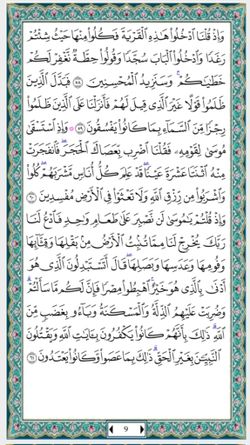 وَإِذْ قُلْنَا ادْخُلُوا هَٰذِهِ الْقَرْيَةَ فَكُلُوا مِنْهَا حَيْثُ شِئْتُمْ
رَغَدًا وَادْخُلُوا الْبَابَ سُجَّدًا وَقُولُوا حِطَّةٌ نَّغْفِرْ لَكُمْ
خَطَايَاكُمْ ۚ وَسَنَزِيدُ الْمُحْسِنِينَ ٥٨ فَبَدَّلَ الَّذِينَ
ظَلَمُوا قَوْلًا غَيْرَ الَّذِي قِيلَ لَهُمْ فَأَنزَلْنَا عَلَى الَّذِينَ ظَلَمُوا
رِجْزًا مِّنَ السَّمَاءِ بِمَا كَانُوا يَفْسُقُونَ ٥٩ ۞ وَإِذِ اسْتَسْقَىٰ
مُوسَىٰ لِقَوْمِهِ فَقُلْنَا اضْرِب بِّعَصَاكَ الْحَجَرَ ۖ فَانفَجَرَتْ
مِنْهُ اثْنَتَا عَشْرَةَ عَيْنًا ۖ قَدْ عَلِمَ كُلُّ أُنَاسٍ مَّشْرَبَهُمْ ۖ كُلُوا
وَاشْرَبُوا مِن رِّزْقِ اللَّهِ وَلَا تَعْثَوْا فِي الْأَرْضِ مُفْسِدِينَ ٦٠
وَإِذْ قُلْتُمْ يَا مُوسَىٰ لَن نَّصْبِرَ عَلَىٰ طَعَامٍ وَاحِدٍ فَادْعُ لَنَا
رَبَّكَ يُخْرِجْ لَنَا مِمَّا تُنبِتُ الْأَرْضُ مِن بَقْلِهَا وَقِثَّائِهَا
وَفُومِهَا وَعَدَسِهَا وَبَصَلِهَا ۖ قَالَ أَتَسْتَبْدِلُونَ الَّذِي هُوَ
أَدْنَىٰ بِالَّذِي هُوَ خَيْرٌ ۚ اهْبِطُوا مِصْرًا فَإِنَّ لَكُم مَّا سَأَلْتُمْ ۗ
وَضُرِبَتْ عَلَيْهِمُ الذِّلَّةُ وَالْمَسْكَنَةُ وَبَاءُوا بِغَضَبٍ مِّنَ
اللَّهِ ۗ ذَٰلِكَ بِأَنَّهُمْ كَانُوا يَكْفُرُونَ بِآيَاتِ اللَّهِ وَيَقْتُلُونَ
النَّبِيِّينَ بِغَيْرِ الْحَقِّ ۗ ذَٰلِكَ بِمَا عَصَوا وَّكَانُوا يَعْتَدُونَ ٦١
9